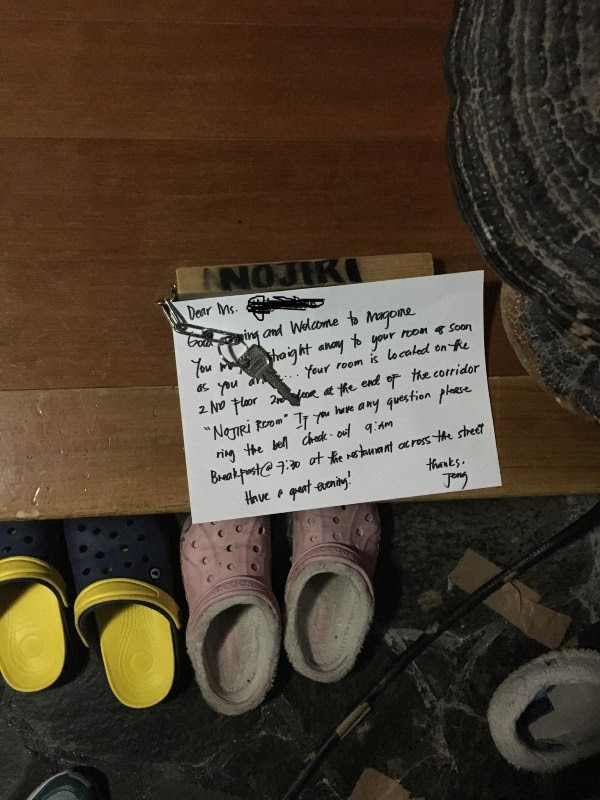 NOJIRI
Dear Ms.
Good and Welcome to Magome
You straight away to your room as soon
as you Your room is located on the
2ND Floor 2nd door at the end of the corridor
"NOJIRI ROOM" If you have any question please
ring the bell check-out 9:AM
Breakfast@ 7:30 at the restaurant across the street
Have a great evening!
thanks.
Jeng